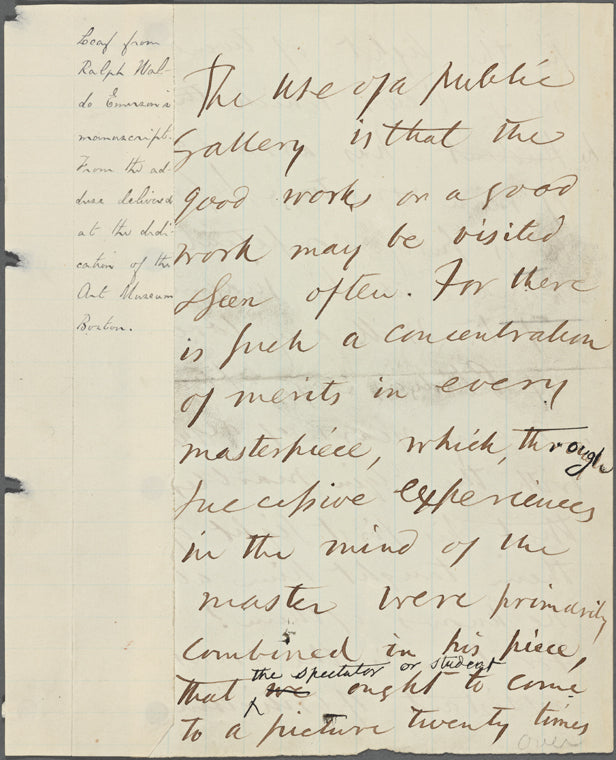 Leaf from
Ralph Wal-
do Emerson's
manuscript.
From the ad-
dress delivered
at the dedi-
cation of the
Art Museum
Boston.
The use of a public
Gallery is that the
good works or a good
work may be visited
& seen often. For there
is such a concentration
of merits in every
masterpiece, which, through
successive experiences
in the mind of the
master were primarily
combined in his piece,
the spectator or student
that we ought to come
to a picture twenty times
over